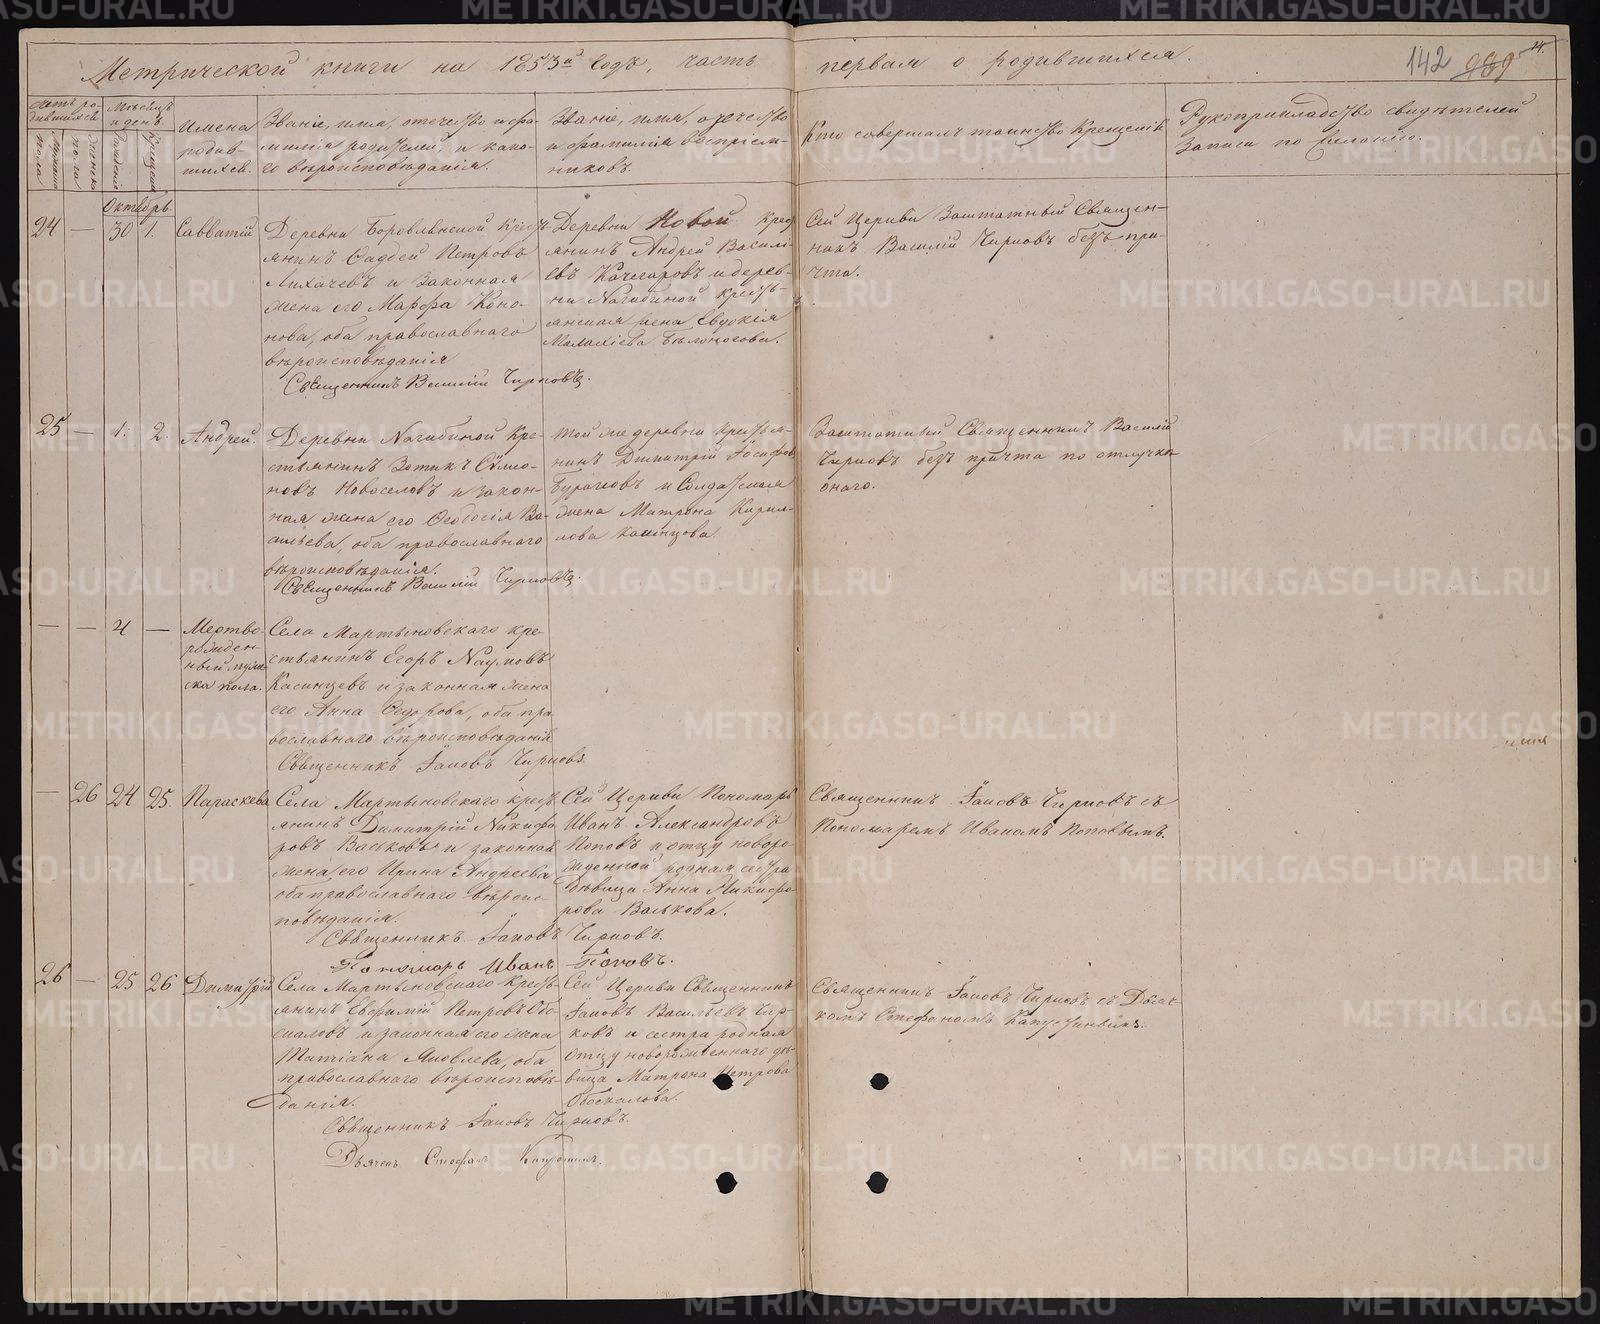 Метрической книги на 1853й Годъ, часть первая о родившихся.
142
Имена родив-
шихся.
Званіе, имя, отечество и фа-
милія родителей, и како-
го вѣроисповѣданія.
Званіе, имя, отечество
и фамилія воспріем-
никовъ.
Кто совершалъ таинство Крещенія
Рукоприкладство свидѣтелей
записи по желанію.
Октябрь
24 — 30 1. Савватій
Деревни Боровлянской Кресть-
янинъ Фаддей Петровъ
Лихачевъ и Законная
жена его Марфа Коно-
нова, оба православнаго
вѣроисповѣданія
Священникъ Василій Чирковъ.
Деревни Новой крес
янинъ Андрей Василь-
евъ Качегаровъ и дерев-
ни Нагибиной кресть-
янская жена Евдокія
Малахіева Бѣлоносова.
Сей Церкви Заштатный Священ-
никъ Василій Чирковъ безъ при-
чта.
25 — 1. 2. Андрей.
Деревни Нагибиной Кре-
стьянинъ Зотикъ Сѵмео-
новъ Новоселовъ и закон-
ная жена его Ѳеодосія Ва-
сильева, оба православнаго
вѣроисповѣданія.
Священникъ Василій Чирковъ.
Той же деревни крестья-
нинъ Димитрій Іосифов
Бурачковъ и Солдатская
жена Матрона Кирил-
лова Казанцова
Заштатный Священникъ Василій
Чирковъ безъ причта по отлучкѣ
онаго.
— — 4 — Мертво-
рожден-
ный муже-
ска пола.
Села Мартыновскаго кре-
стьянинъ Егоръ Наумовъ
Касинцевъ и законная жена
его Анна Ѳедорова, оба пра
вославнаго вѣроисповѣданія
Священникъ Іаковъ Чирковъ.
— 26 24 25. Параскева
Села Мартыновскаго крест
янинъ Димитрій Никифо
ровъ Васьковъ и законная
жена его Ирина Андреева
оба православнаго вѣроис-
повѣданія.
Священникъ Іаковъ Чирковъ.
Пономарь Иванъ Поповъ.
Сей Церкви Пономарь
Иванъ Александровъ
Поповъ и отцу новоро-
жденной родная сестра
дѣвица Анна Никифо-
рова Васькова.
Священникъ Іаковъ Чирковъ съ
Пономаремъ Иваномъ Поповымъ.
26 — 25 26 Димитрій
Села Мартыновскаго Кресть-
янинъ Евфимій Петровъ Обо-
скаловъ и законная его жена
Татіана Яковлева, оба
православнаго вѣроисповѣ-
данія.
Священникъ Іаковъ Чирковъ.
Дьячекъ Стефанъ Капустинъ.
Сей Церкви Священникъ
Іаковъ Васильевъ Чир-
ковъ и сестра родная
Отцу новорожденнаго дѣ-
вица Матрона Петрова
Обоскалова.
Священникъ Іаковъ Чирковъ съ Дьяч-
комъ Стефаномъ Капустинымъ.
METRIKI.GASO-URAL.RU